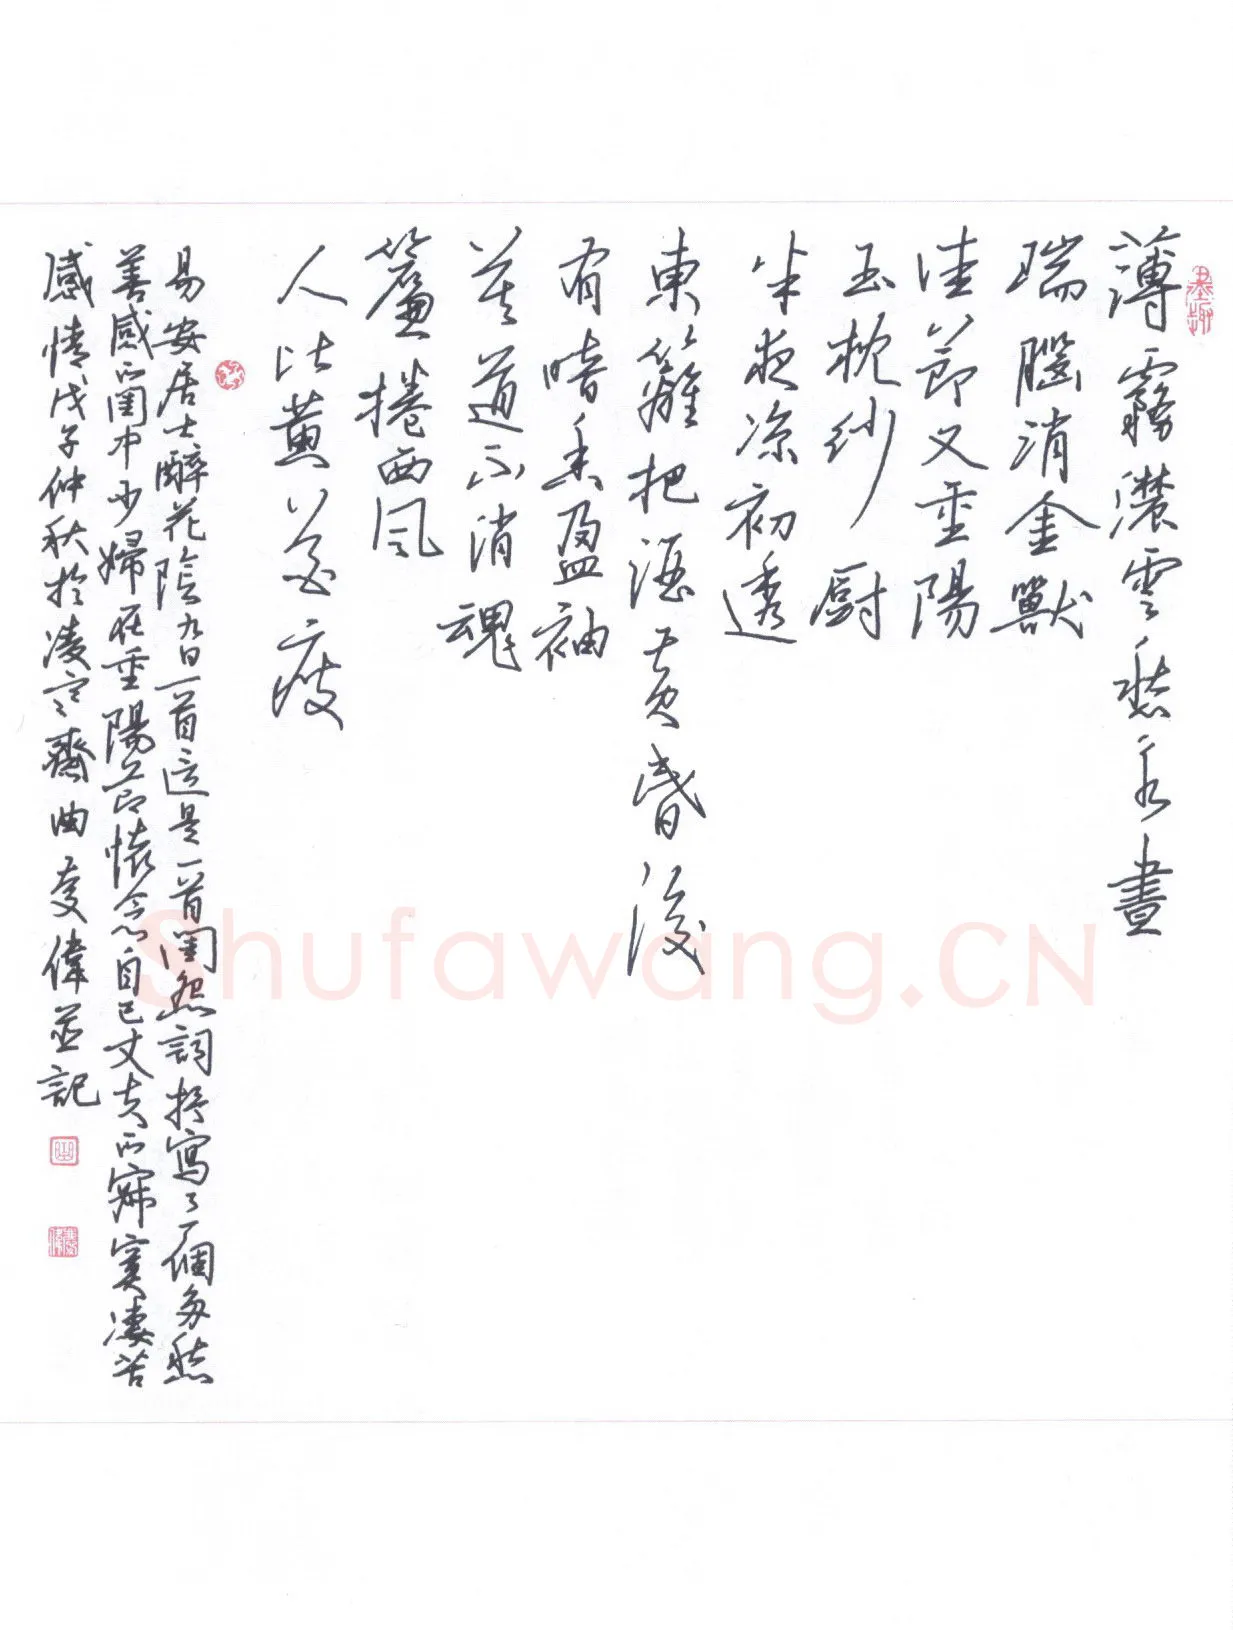 薄霧濃雲愁永晝
瑞腦消金獸
佳節又重陽
玉枕紗厨
半夜涼初透
東籬把酒黃昏後
有暗香盈袖
莫道不消魂
簾捲西風
人比黃花瘦
易安居士醉花陰九日一首這是一首閨怨詞抒寫了一個多愁
善感的閨中少婦在重陽節懷念自己丈夫的寂寞凄苦
感情戊子仲秋於凌寒齋曲慶偉並記
Shufawang.CN